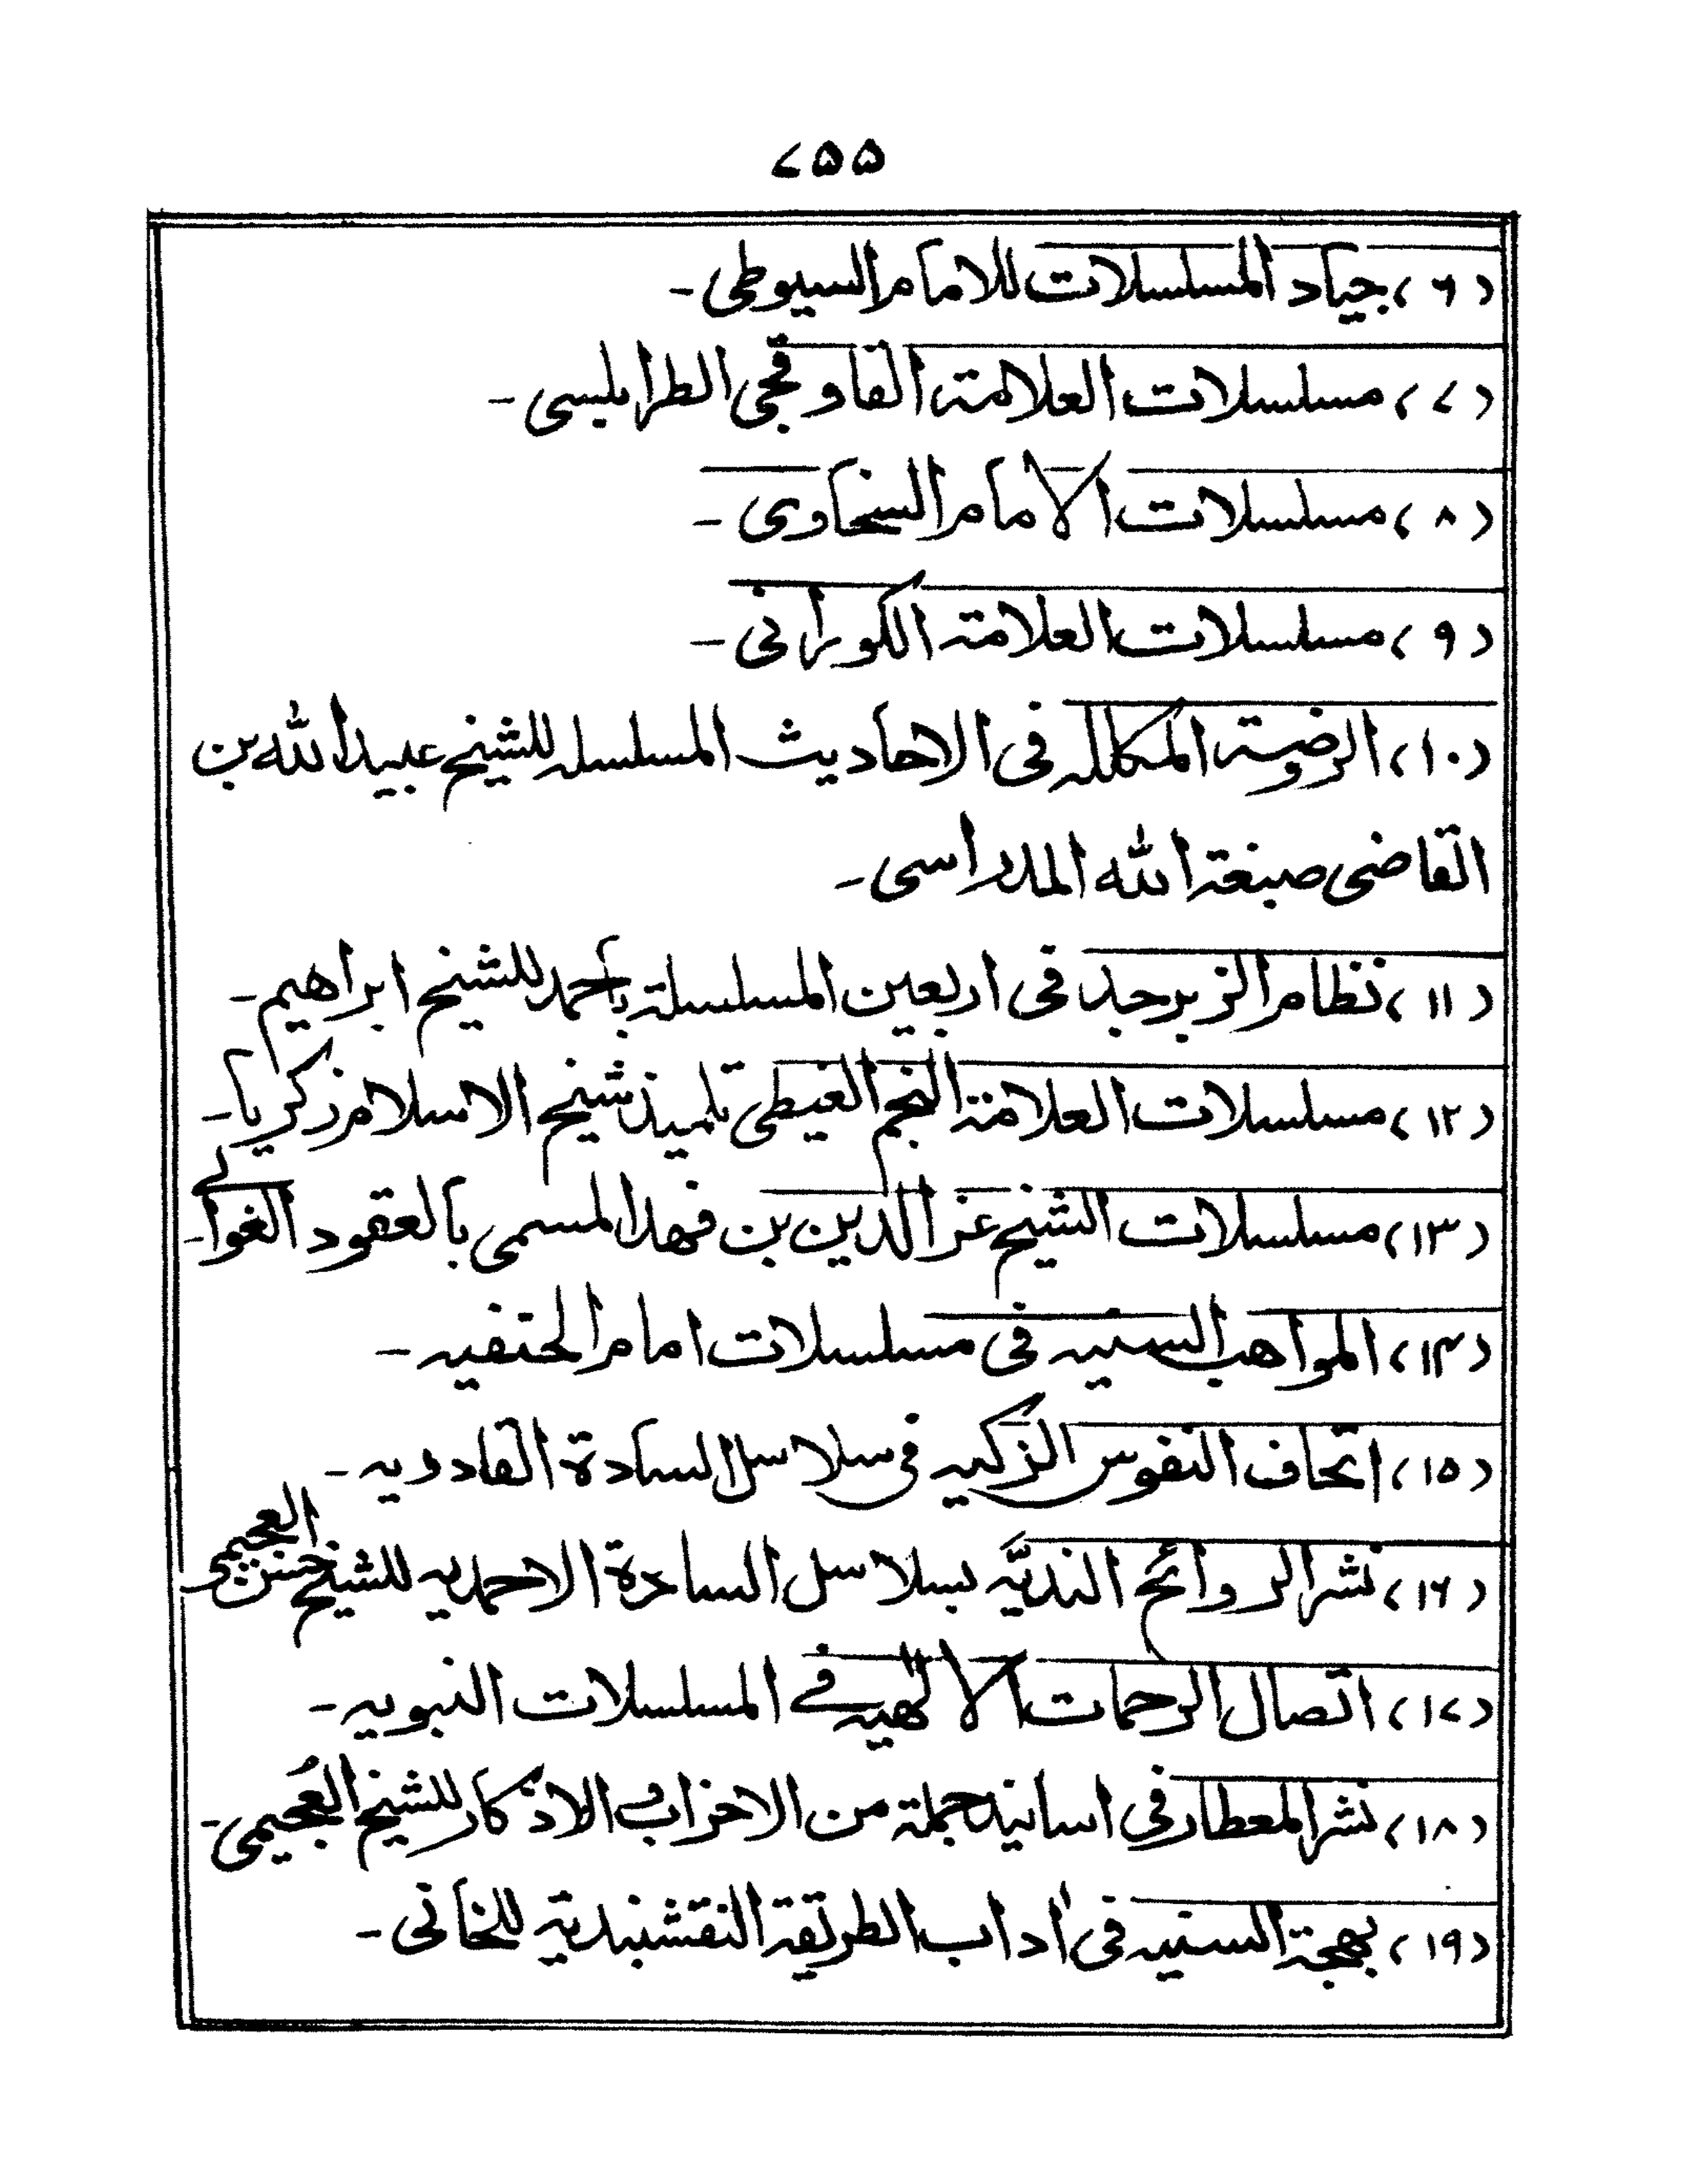 ۷۵۵
(۶) جیاد المسلسلات للامام السیوطی ۔
(۷) مسلسلات العلامۃ القاوقجی الطرابلسی ۔
(۸) مسلسلات الامام السخاوی ۔
(۹) مسلسلات العلامۃ الکورانی ۔
(۱۰) الروضۃ المکللہ فی الاحادیث المسلسلہ للشیخ عبید اللہ بن
القاضی صبغۃ اللہ المدراسی ۔
(۱۱) نظام الزبرجد فی اربعین المسلسلۃ باحمد للشیخ ابراھیم ۔
(۱۲) مسلسلات العلامۃ النجم الغیطی تلمیذ شیخ الاسلام زکریا ۔
(۱۳) مسلسلات الشیخ عز الدین بن فھد المسمی بالعقود الغوالے ۔
(۱۴) المواھب السنیہ فی مسلسلات امام الحنفیہ ۔
(۱۵) اتحاف النفوس الزکیہ فی سلاسل السادۃ القادریہ ۔
(۱۶) نشر الروائح الندیَّہ بسلاسل السادۃ الاحمدیہ للشیخ حسن العجیمی ۔
(۱۷) اتصال الرحمات الالھیہ فے المسلسلات النبویہ ۔
(۱۸) نشر المعطار فی اسانید جملۃ من الاحزاب و الاذکار للشیخ العُجیمی ۔
(۱۹) بھجۃ السنیہ فی اداب الطریقۃ النقشبندیۃ للخانی ۔